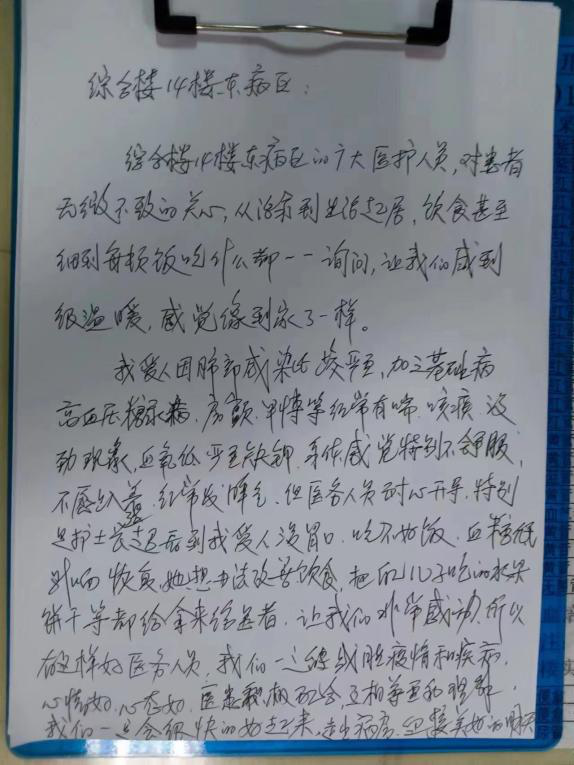 综合楼14楼东病区:
综合楼14楼东病区的广大医护人员,对患者
无微不致的关心,从治疗到生活起居,饮食甚至
细到每顿饭吃什么都一一询问,让我们感到
很温暖,感觉像到家了一样。
我爱人因肺部感染比较严重,加之基础病
高血压糖尿病,房颤,早搏等经常有喘,咳痰,
现象,血氧低严重缺钾,身体感觉特别不舒服,
不愿,经常发脾气,但医务人员耐心开导,特别
是护士长看到我爱人没胃口,吃不好饭,血糖低
影响恢复,她想办法改善饮食,把的儿子吃的水果
饼干等都给拿来给患者,让我们非常感动,所以
有这样好医务人员,我们一定能战胜疫情和疾病,
心情好,心态好,医患积极配合,互相尊重和理解,
我们一定会很快的好起来,走出病房,迎接美好的明天